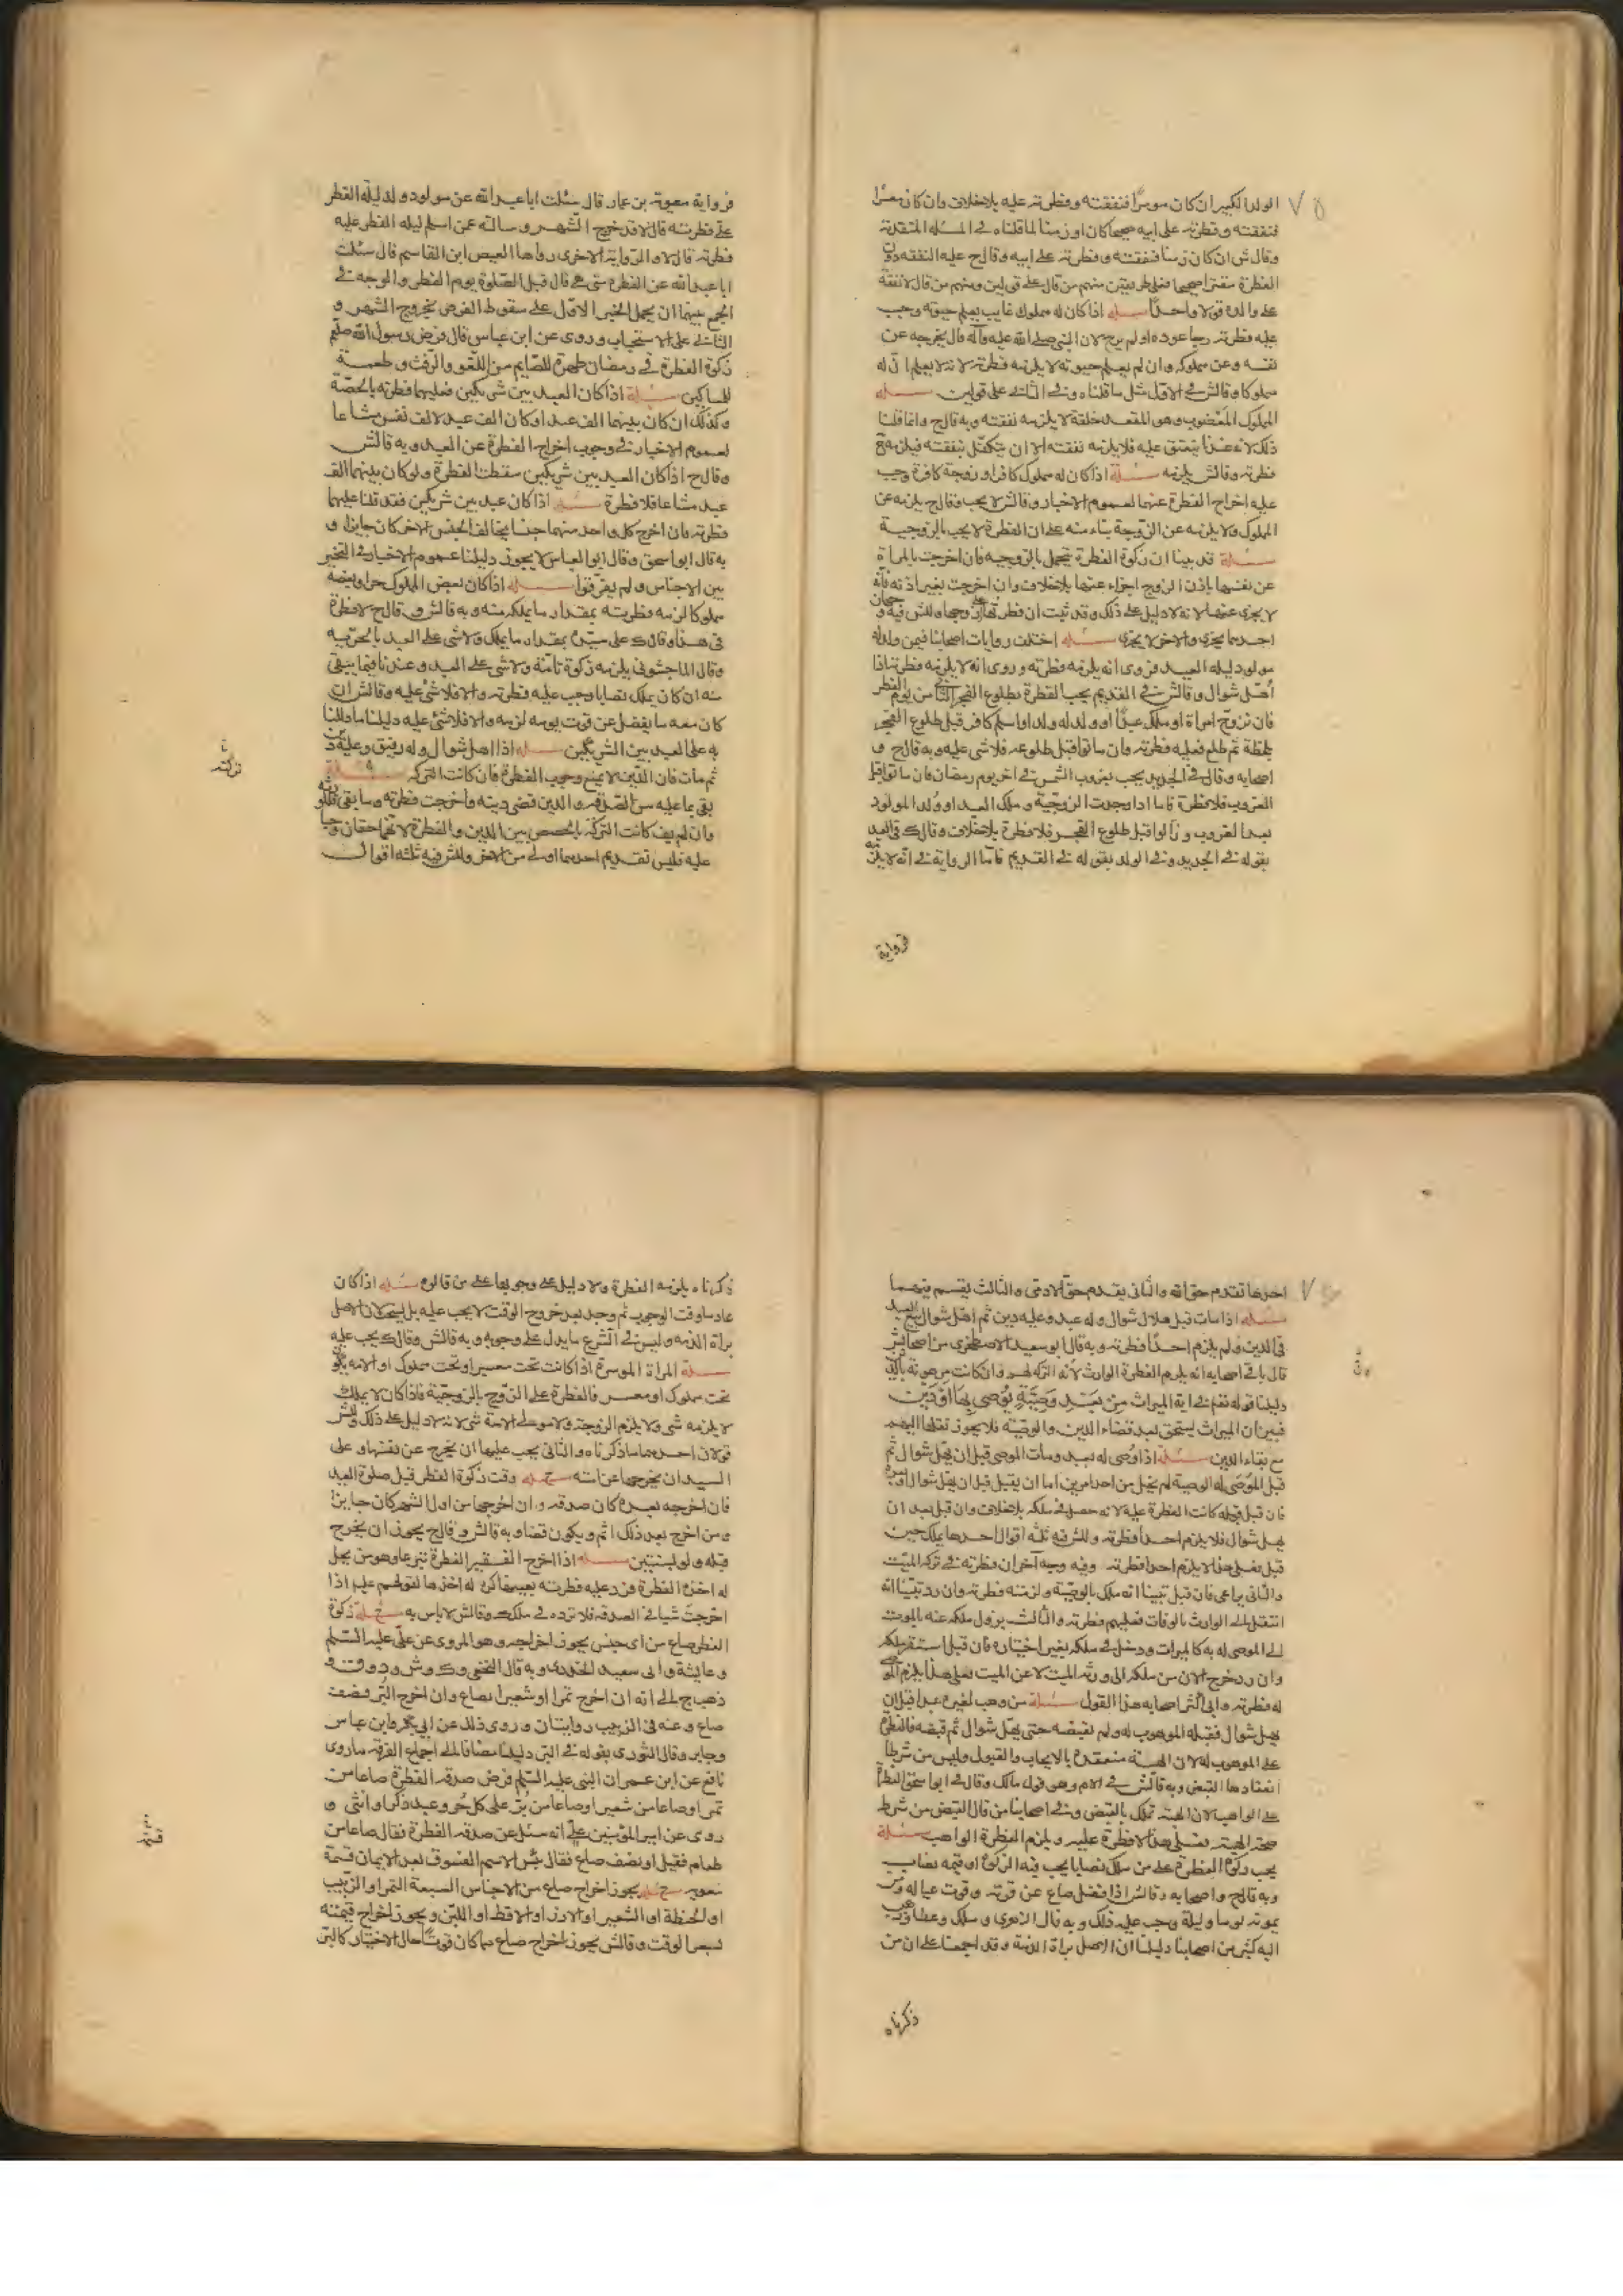 الولد الكبير ان كان موسرًا فنفقته وفطرته عليه بلاخلاف وان كان معسرًا
فنفقته وفطرته على ابيه صحيحا كان او زمنا لما قلناه في المسئلة المتقدمة
وقال ش ان كان زمنا فنفقته وفطرته على ابيه وقال ح عليه النفقة دون
الفطرة
على والده قولا واحدًا مسئلة اذا كان له مملوك غايب يعلم حيوته وجب
عليه فطرته رجا عوده او لم يرج لان النبي صلى الله عليه وآله قال يخرجه عن
نفسه وعن مملوكه وان لم يعلم حيوته لا يلزمه فطرته لانه لا يعلم ان له
مملوكا وقال ش في الاول مثل ما قلناه وفي الثاني على قولين مسئلة
المملوك المعضوب وهو المقعد خلقة لا يلزمه نفقته وبه قال ح وانما قلنا
ذلك لانه عندنا ينعتق عليه فلا يلزمه نفقته الا ان يتكفل بنفقته فيلزمه
فطرته وقال ش يلزمه مسئلة اذا كان له مملوك كافر او زوجة كافرة وجب
عليه اخراج الفطرة عنهما لعموم الاخبار وقال ش لا يجب وقال ح يلزمه عن
المملوك ولا يلزمه عن الزوجة بناء منه على ان الفطرة لا يجب بالزوجية
مسئلة قد بينا ان زكوة الفطرة يتحمل بالزوجيه فان اخرجت المراة
عن نفسها باذن الزوج اجزاء عنها بلاخلاف وان اخرجت بغير اذنه فانه
لا يجزى عنها لانه لا دليل على ذلك وقد ثبت ان فطرتها على زوجها وللش فيه وجهان
احدهما يجزى والاخر لا يجزى مسئله اختلف روايات اصحابنا فيمن ولد له
مولود ليله العيد فروى انه يلزمه فطرته وروى انه لا يلزمه فطرته اذا
اهل شوال وقال ش في القديم يجب الفطرة بطلوع الفجر الثاني من يوم الفطر
فان تزوج امراة او ملك عبدًا او ولد له ولد او اسلم كافر قبل طلوع الفجر
بلحظة ثم طلع فعليه فطرته وان ماتوا قبل طلوعه فلا شى عليه وبه قال ح و
اصحابه وقال في الجديد يجب بغروب الشمس في اخر يوم رمضان فان ماتوا قبل
الغروب فلا فطرة فاما اذا وجدت الزوجية وملك العبد او ولد المولود
بعد الغروب وزالوا قبل طلوع الفجر فلا فطرة بلاخلاف وقال ك في العبد
بقوله في الجديد وفي الولد بقوله في القديم فامّا الرواية في انه لا يلزمه
فرواية
فرواية معوية بن عمار قال سئلت ابا عبد الله عن مولود ولد ليله الفطر
عليه فطرته قال لا قد خرج الشهر وسالته عن اسلم ليله الفطر عليه
فطرته قال لا والرواية الاخرى رواها العيص ابن القاسم قال سئلت
ابا عبد الله عن الفطرة متى هي قال قبل الصلوة يوم الفطر والوجه في
الجمع بينهما ان يحمل الخبر الاول على سقوط الفرض بخروج الشهر و
الثاني على الاستحباب وروى عن ابن عباس قال فرض رسول الله صلعم
زكوة الفطرة في رمضان طهرة للصايم من اللغو والرفث وطعمة
للمساكين مسئلة اذا كان العبد بين شريكين فعليهما فطرته بالحصة
وكذلك ان كان بينهما الف عبد او كان الف عبد لالف نفس مشاعا
لعموم الاخبار في وجوب اخراج الفطرة عن العبد وبه قال ش
وقال ح اذا كان العبد بين شريكين سقطت الفطرة ولو كان بينهما الف
عبد مشاعا فلا فطرة مسئله اذا كان عبد بين شريكين فقد قلنا عليهما
فطرته فان اخرج كل واحد منهما جنسا يخالف الجنس الاخر كان جايزا و
به قال ابو اسحق وقال ابو العباس لا يجوز دليلنا عموم الاخبار في التخيير
بين الاجناس ولم يفرقوا مسئله اذا كان بعض المملوك حرا وبعضه
مملوكا لزمه فطرته بمقدار ما يملكه منه وبه قال ش وقال ح لا فطرة
في هذا وقال ك على سيده بمقدار ما يملك ولا شى على العبد بالحرية
وقال الماجشونى يلزمه زكوة تامّة ولا شى على العبد وعندنا فيما يبقى
منه ان كان يملك نصابا وجب عليه فطرته والا فلا شئ عليه وقال ش ان
كان معه ما يفضل عن قوت يومه لزمه والا فلا شئ عليه دليلنا ما دللنا
به على العبد بين الشريكين مسئله اذا اهل شوال وله رقيق وعليه دين
ثم مات فان الدين لا يمنع وجوب الفطرة فان كانت التركة
يفى بما عليه من الفطرة والدين قضى دينه واخرجت فطرته وما بقى
وان لم يف كانت التركة بالحصص بين الدين والفطرة لانهما حقان وجبا
عليه فليس تقديم احدهما اولى من الاخر وللش فيه ثلثه اقوال
تركته
احدها تقدم حق الله والثانى يقدم حق الادمى والثالث يقسم بينهما
مسئله اذا مات قبل هلال شوال وله عبد وعليه دين ثم اهل شوال بيع العبد
في الدين ولم يلزم احدًا فطرته وبه قال ابو سعيد الاصطخرى من اصحاب ش
قال باقى اصحابه انه يلزم الفطرة الوارث لانّ التركة لهم وان كانت مرهونه بالدين
دليلنا قوله تعالى في اية الميراث مِنْ بَعْدِ وَصِيَّةٍ يُوصِي بِهَا أَوْ دَيْنٍ
فبين ان الميراث يستحق بعد قضاء الدين والوصيّة فلا يجوز نقلها اليهم
مع بقاء الدين مسئلة اذا اوصى له بعبد ومات الموصى قبل ان يهل شوال ثم
قبل الموصى له الوصية لم يخل من احد امرين اما ان يقبل قبل ان يهل شوال او بعده
فان قبل قبله كانت الفطرة عليه لانه حصل في ملكه بلاخلاف وان قبل بعد ان
يهل شوال فلا يلزم احدًا فطرته وللش فيه ثلثه اقوال احدها يملك حين
قبل فعلى هذا لا يلزم احدا فطرته وفيه وجه آخر ان فطرته في تركه الميت
والثانى يراعى فان قبل تبينا انه ملك بالوصيّة ولزمته فطرته وان رد تبيّنا انه
انتقل الى الوارث بالوفات فعليهم فطرته والثالث يزول ملكه عنه بالموت
الى الموصى له به كالميراث ودخل في ملكه بغير اختياره فان قبل استقر ملكه
وان رد خرج الان من ملكه الى ورثه الميت لا عن الميت فعلى هذا يلزم الموصى
له فطرته وابى اكثر اصحابه هذا القول مسئلة من وهب لغيره عبدا قبل ان
يهل شوال فقبله الموهوب له ولم يقبضه حتى يهل شوال ثم قبضه فالفطرة
على الموهوب له لان الهبة منعقدة بالايجاب والقبول وليس من شرط
انعقادها القبض وبه قال ش في الام وهو قول مالك وقال ابو اسحق الفطرة
على الواهب لان الهبة تملك بالقبض وفي اصحابنا من قال القبض من شرط
صحة الهبة فعلى هذا لا فطرة عليه ويلزم الفطرة الواهب مسئلة
يجب زكوة الفطرة على من ملك نصابا يجب فيه الزكوة او قيمة نصاب
وبه قال ح واصحابه وقال ش اذا فضل صاع عن قوته وقوت عياله ومن
يمونه يوما وليلة وجب عليه ذلك وبه قال الزهرى و ملك وعطا وذهب
اليه كثير من اصحابنا دليلنا ان الاصل براة الذمة وقد اجمعنا على ان من
ذكرناه
ذكرناه يلزمه الفطرة ولا دليل على وجوبها على من قالوه مسئله اذا كان
عادما وقت الوجوب ثم وجد بعد خروج الوقت لا يجب عليه بل يستحب لان الاصل
براة الذمه وليس في الشرع ما يدل على وجوبه وبه قال ش وقال ك يجب عليه
مسئلة المراة الموسرة اذا كانت تحت معسر او تحت مملوك او الامه يكون
تحت مملوك او معسر فالفطرة على الزوج بالزوجيّة فاذا كان لا يملك
لا يلزمه شى ولا يلزم الزوجة ولا مولى الامة شى لانه لا دليل على ذلك وللش
قولان احدهما ما ذكرناه والثانى يجب عليها ان يخرج عن نفسها وعلى
السيد ان يخرجها عن امته مسئله وقت زكوة الفطر قبل صلوة العيد
فان اخرجه بعده كان صدقه وان اخرجها من اول الشهر كان جايزا
ومن اخرج بعد ذلك اثم ويكون قضا وبه قال ش وقال ح يجوز ان يخرج
قبله ولو بسنتين مسئله اذا اخرج الفقير الفطرة تبرعا وهو ممن يحل
له اخذه الفطرة فرد عليه فطرته بعينها كره له اخذها لقولهم عليهم اذا
اخرجت شيا في الصدقه فلا ترده في ملكك وقال ش لا باس به مسئلة زكوة
الفطر صاع من اى جنس يجوز اخراجه وهو المروى عن علىّ عليه السّلم
وعايشة وابى سعيد الخدرى وبه قال النخعى
ذهب ح الى انه ان اخرج تمرا او شعيرا بصاع وان اخرج البُرّ فنصف
صاع وعنه في الزبيب روايتان وروى ذلك عن ابى بكر وابن عباس
وجابر وقال الثورى بقوله في البر دليلنا مضافا الى اجماع الفرقه ما روى
نافع عن ابن عمر ان النبى عليه السّلم فرض صدقه الفطرة صاعا من
تمر او صاعا من شعير او صاعا من بُرّ على كل حُرّ وعبد ذكر او انثى و
روى عن امير المؤمنين علىّ انه سئل عن صدقه الفطرة فقال صاعا من
طعام فقيل او نصف صاع فقال بئس الاسم الفسوق بعد الايمان
مسئله يجوز اخراج صاع من الاجناس السبعة التمر او الزبيب
او الحنطة او الشعير او الارز او الاقط او اللبن ويجوز اخراج قيمته
بسعر الوقت وقال ش يجوز اخراج صاع مما كان قوتًا حال الاختيار كالبُرّ